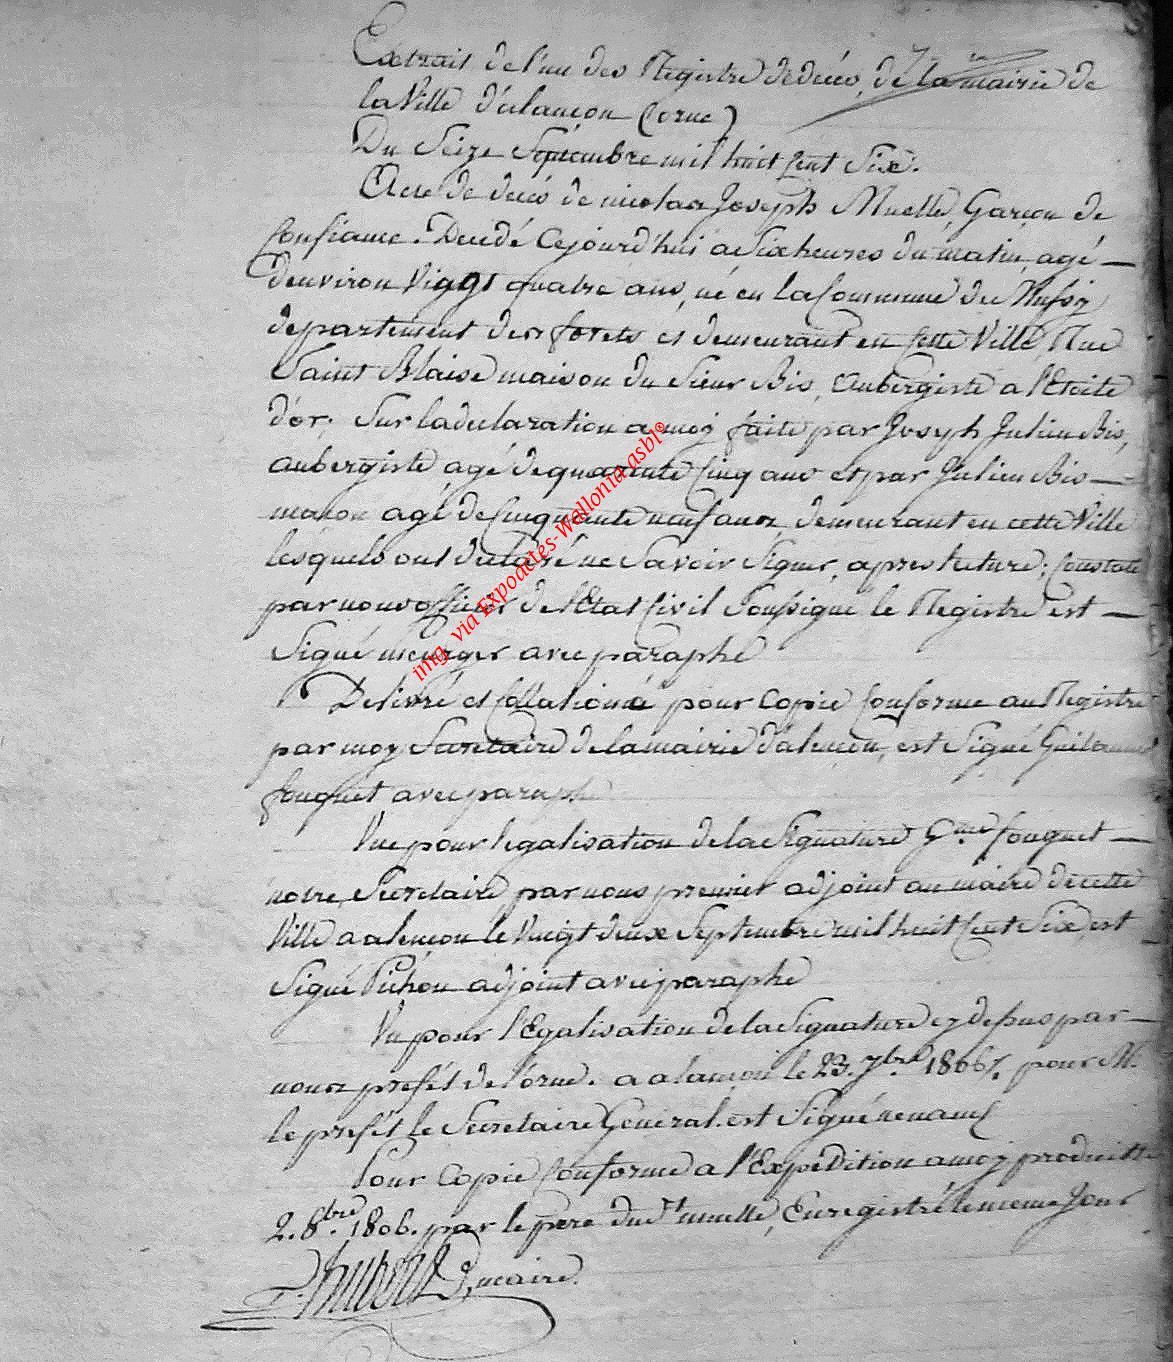 Extrait de l'un des Registre de deces, de la mairie de
la Ville d'alançon (orne)
Du Seize Septembre mil huit Cent Six.
Acte de decés de nicolas Joseph Muelle, Garçon de
Confiance. Decedé Cejourd'hui a Six heures du matin, agé
d'environ Viggt quatre ans, né en la Commune de Mussy
departement des forets et demeurant en Cette Ville Rue
Saint Blaise maison du Sieur Bis, Aubergiste a l'Etoile
d'or; Sur la declaration a moy faite par Joseph Julien Bis,
aubergiste, agé de quarente Cinq ans et par Julien Bis
maçon agé de Cinquante neuf ans, demeurant en cette Ville
lesquels ont declaré ne Savoir Signer, apres lecture; Constaté
par nous officier de l'Etat Civil Soussigné le Registre est
Signé avec paraphe
Delivré et Collationné pour Copie Conforme au Registre
par moy Secretaire de la mairie d'alençon, est Signé Guilaume
fouquet avec paraphe
Vue pour legalisation de la Signature Gme fouquet
notre Secretaire par nous premier adjoint au maire de cette
Ville a alencon le Vingt deux Septembre mil huit Cent Six, est
Signé Pichon adjoint avec paraphe
Vu pour l'Egalisation de la Signature cy dessus par
nous prefét de l'orne. a alançon le 23. 7bre 1806. pour M.
le prefét le Secretaire General. est Signé
Pour Copie Conforme a l'Expedition a moy produitte
2. 8bre 1806. par le pere du dt muelle, Enregistré le meme Jour
Hubert, maire.
img. via Expoactes-Wallonia asbl®